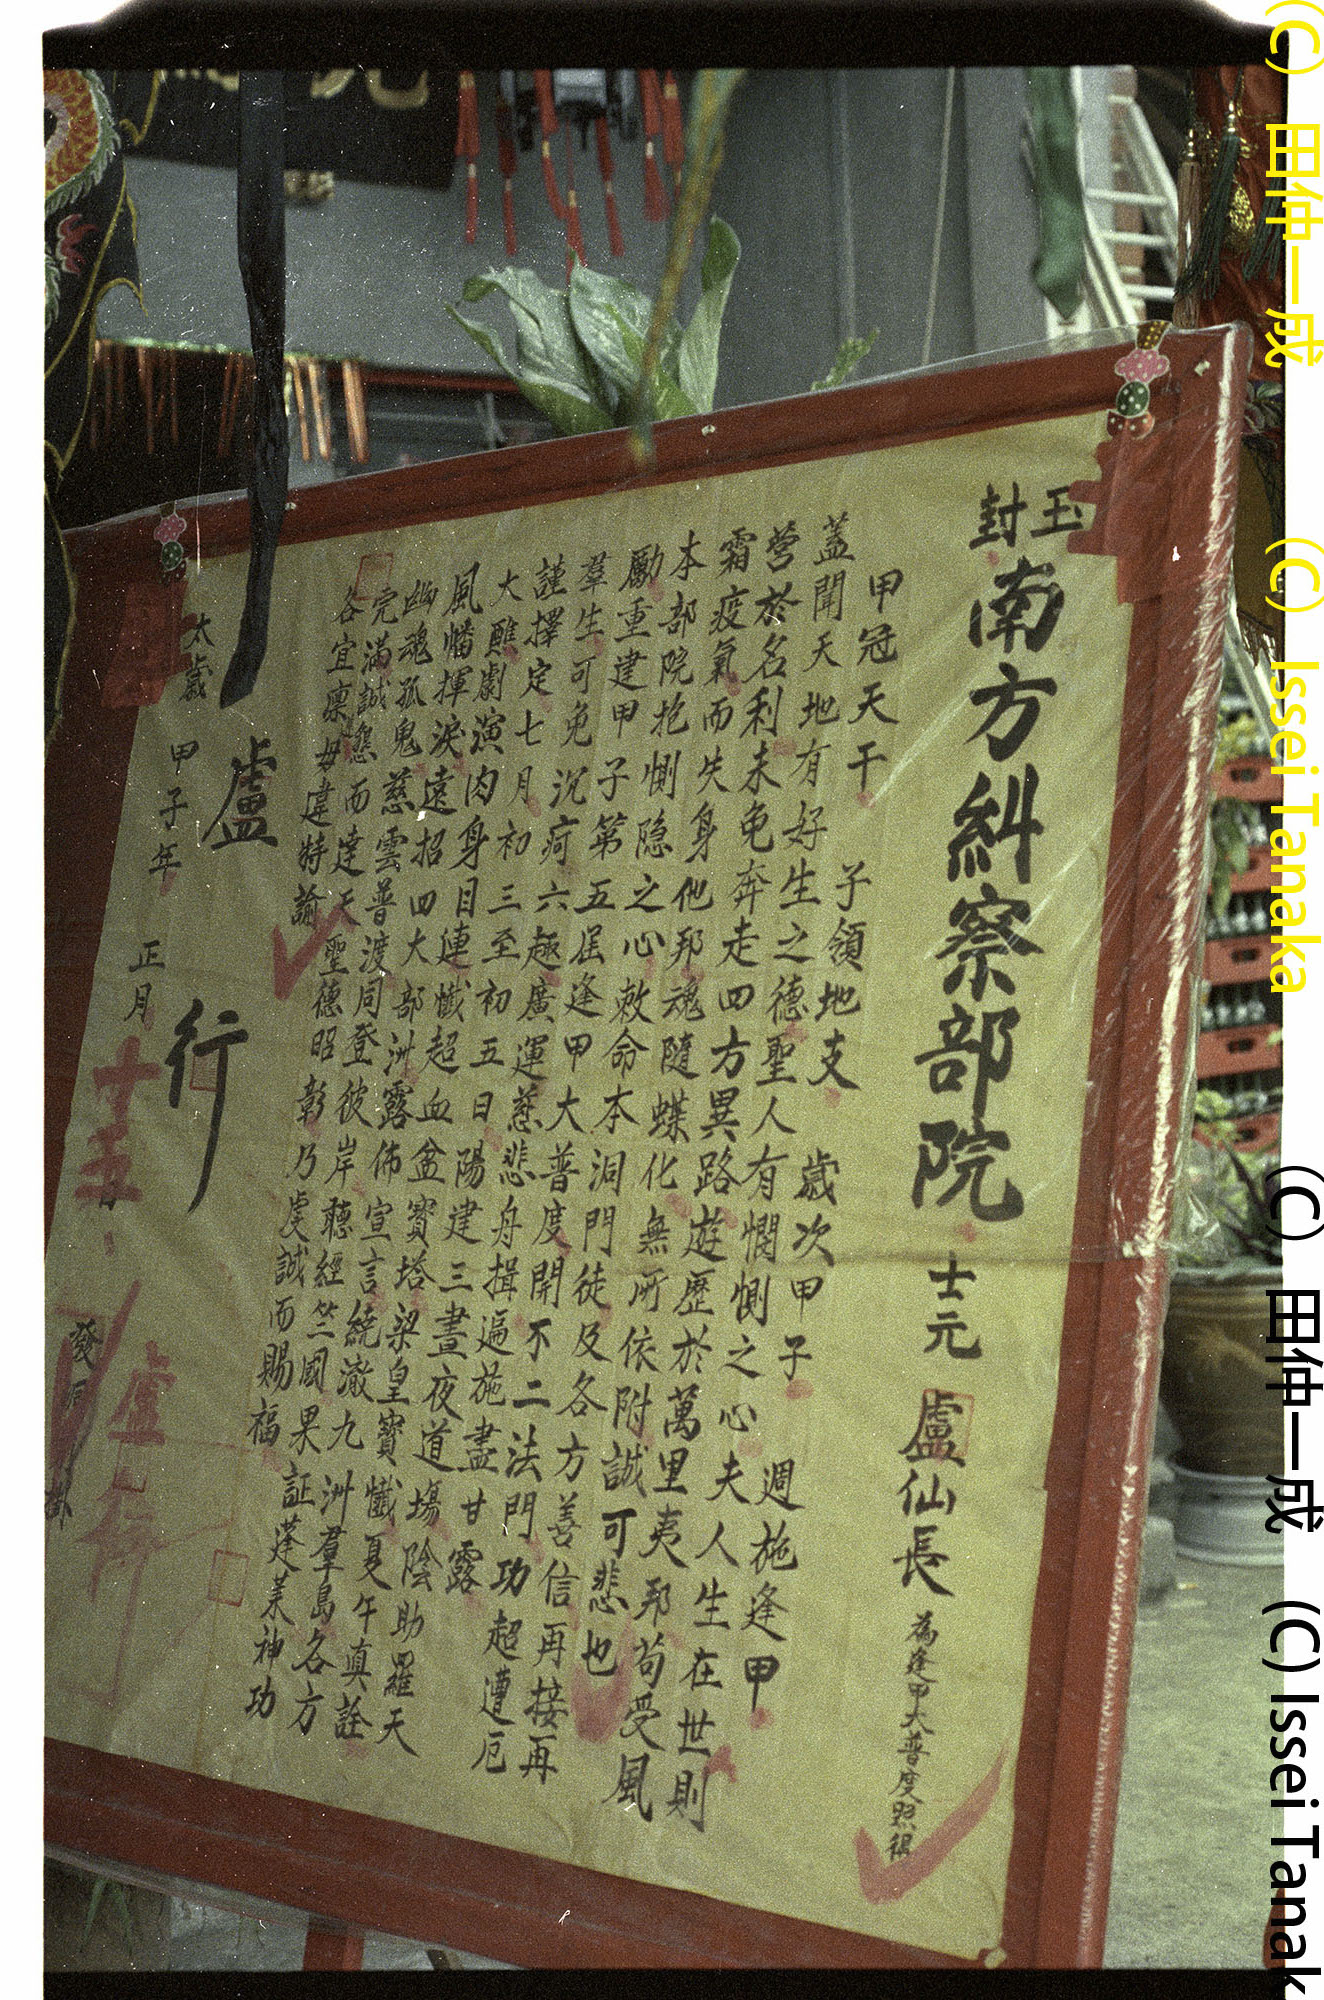 玉封 南方糾察部院 士元 盧仙長 為逢甲大普度照得
甲冠天干 子領地支 歲次甲子 週施逢甲
蓋聞天地有好生之德聖人有憫惻之心夫人生在世則
營於名利未免奔走四方異路遊歷於萬里夷邦苟受風
霜疫氣而失身他邦魂隨蝶化無所依附誠可悲也
本部院抱惻隐之心敕命本洞門徒及各方善信再接再
勵重建甲子第五屆逢甲大普度開不二法門功超遭厄
羣生可免沉疴六趣廣運慈悲舟揖遍施盡甘露
謹擇定七月初三至初五日陽建三晝夜道場陰助羅天
大醮劇演肉身目連懺超血盆寶塔梁皇寶懺夏午真詮
風幡揮淚遠招四大部洲露佈宣言繞澈九洲羣島各方
幽魂孤鬼慈雲普渡同登彼岸聽經竺國果証蓬萊神功
完滿誠懇而達天聖德昭彰乃虔誠而賜福
各宜凛毋違特諭
盧行
太歲甲子年正月十五日
盧行
發 掛
(C) 田仲一成 (C) Issei Tanaka (C) 田仲一成 (C) Issei Tanak